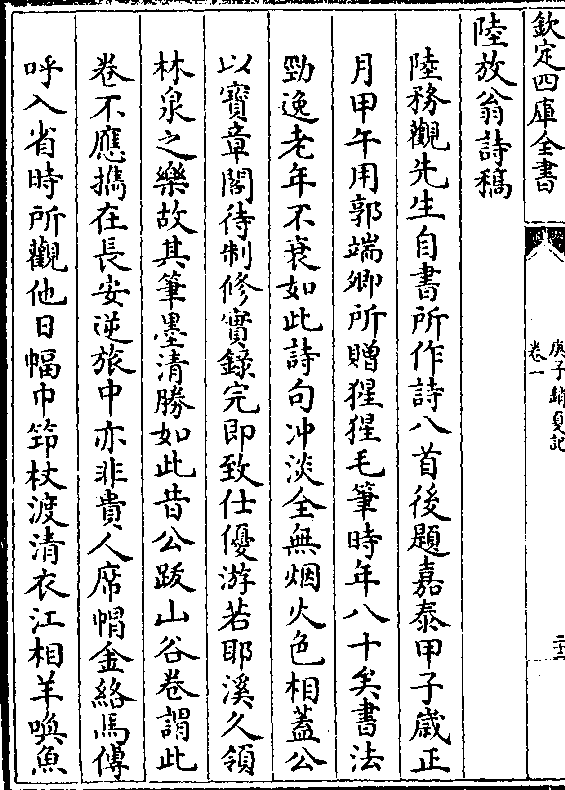 欽定四庫全書
庚子銷夏記
卷一
二十二
陸放翁詩稿
陸務觀先生自書所作詩八首後題嘉泰甲子歲正
月甲午用郭端卿所贈猩猩毛筆時年八十矣書法
勁逸老年不衰如此詩句冲淡全無烟火色相蓋公
以寶章閣待制修實錄完即致仕優游若耶溪久領
林泉之樂故其筆墨清勝如此昔公跋山谷卷謂此
卷不應攜在長安逆旅中亦非貴人席帽金絡馬傳
呼入省時所觀他日幅巾筇杖渡清衣江相羊喚魚